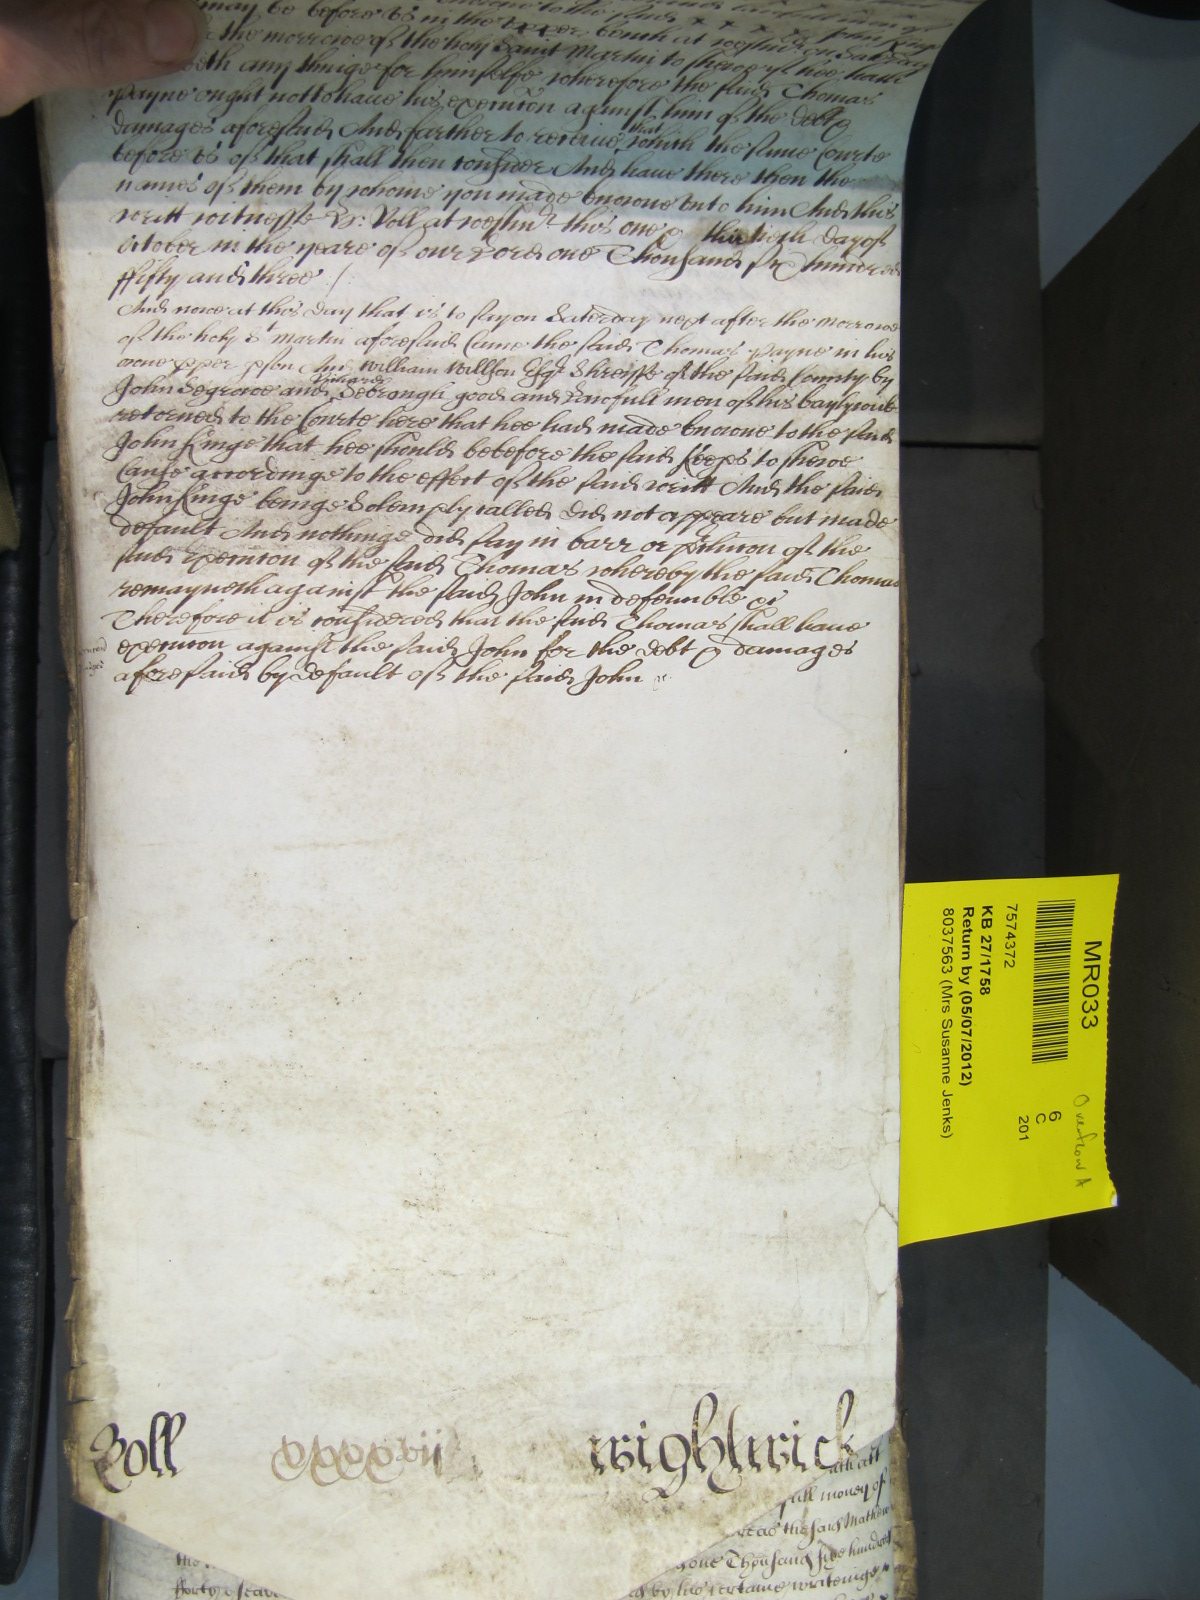 may be before us in the upper bench at westmr on Saturday
the morrowe of the holy Saint Martin to shewe yf hee hath
any thinge for himselfe wherefore the said Thomas
Payne ought not to have his execucon against him of the debt &
damages aforesaid And farther to receive that which the same Courte
before us of that shall then consider And have there then the
names of them by whome you made knowne unto him And this
writt witnesse H: Roll at westmr this one & thirtieth day of
October in the yeare of our Lord one Thousand six hundred
fifty and three /
And nowe at this day that is to say on Saturday next after the morrowe
of the holy St Martin aforesaid Came the said Thomas Payne in his
owne pper pson And William Willson Esqr Shreiffe of the said County by
John Segrave and Richard Sebrough good and Lawfull men of his baylywick
retorned to the Courte here that hee had made knowne to the said
John Kinge that hee should be before the said Keeps to shewe
Cause accordinge to the effect of the said writt And the said
John Kinge beinge Solemply called did not appeare but made
default And nothinge did say in barr or pclusion of the
said Execucon of the said Thomas whereby the said Thomas
remayneth against the said John indefensible &c
Therefore it is considered that the said Thomas shall have
execucon against the said John for the debt & damages
aforesaid by default of the said John &c
Roll xxxxvii wightwick
full money of
the said Mathew
one Thousand five hundred
by his certaine writeinge
forty & seaven
MR033
7574372
KB 27/1758
Return by (05/07/2012)
8037563 (Mrs Susanne Jenks)
6
C
201
Overflow A